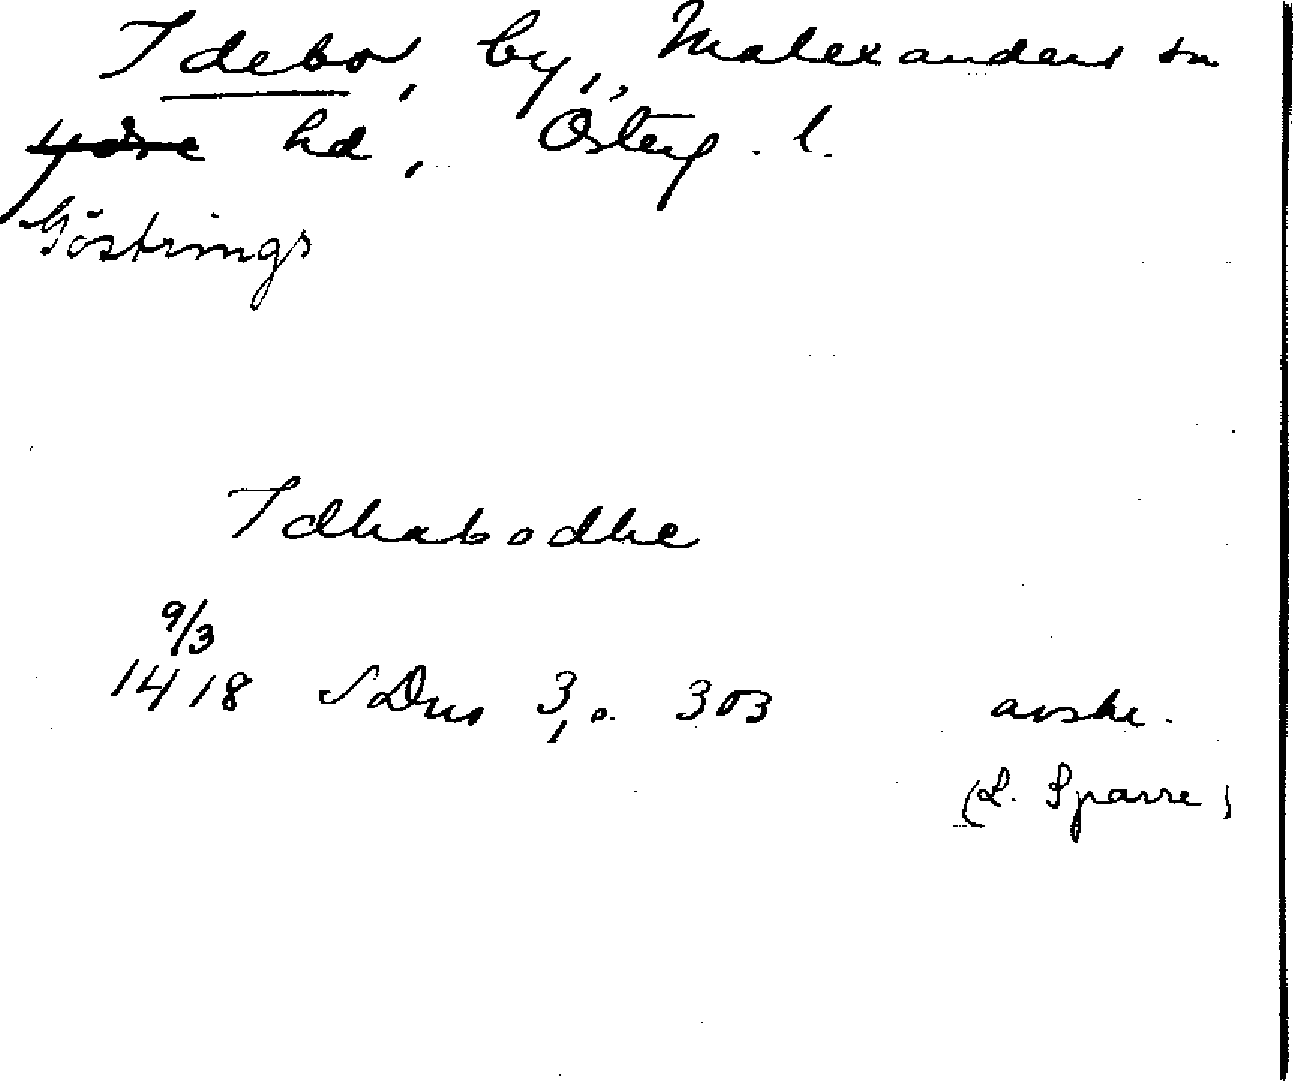 Idebo, by, Malexanders sn
Ydre hd, Österg. l.
Göstrings
Idhabodhe
9/3
1418 SDns 3, s. 303 avskr.
(L. Sparre)